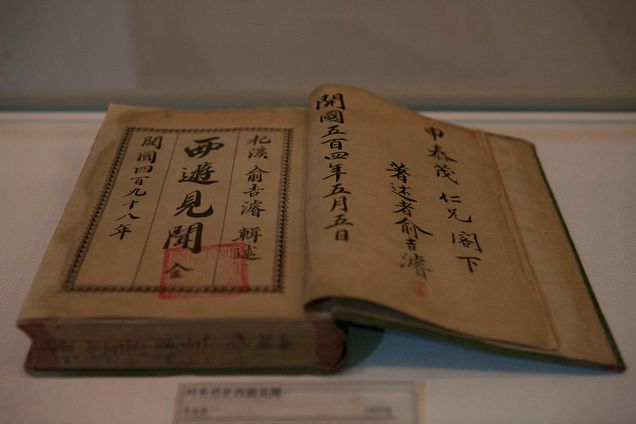 申泰茂 仁兄 閣下
著述者兪吉濬
開國五百四年五月五日
杞溪 兪吉濬 輯述
西遊見聞 全
開國四百九十八年
서유견문西遊見聞